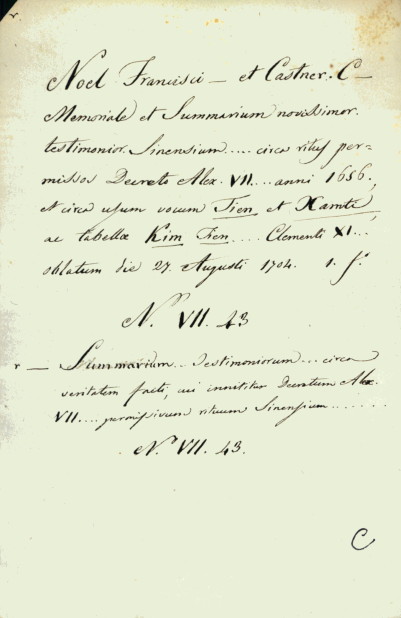 Noel Francisci — et Castner. C—
Memoriale et Summarium novissimor.
testimonior. Sinensium .... circa ritus per=
missos Decreto Alex. VII ... anni 1656.,
et circa usum vocum Tien et Xamti,
ac tabellæ Kim Tien .... Clementi XI ...
oblatum die 27. Augusti 1704. 1. f.
N. VII. 43
r — Summarium .. Testimoniorum ... circa
veritatem facti, cui innititur Decretum Alex.
VII .... permissivum rituum Sinensium .......
N. VII. 43.
C